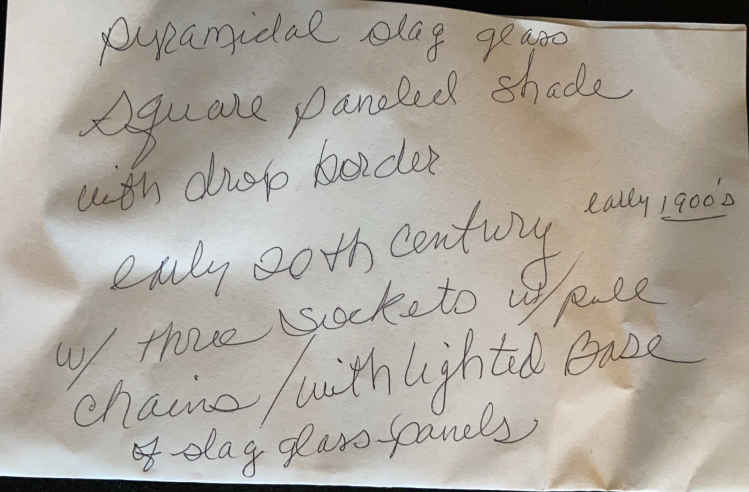 pyramidal slag glass
square paneled shade
with drop border
early 1900's
early 20th century
w/ three sockets w/ pull
chains/with lighted Base
of slag glass panels